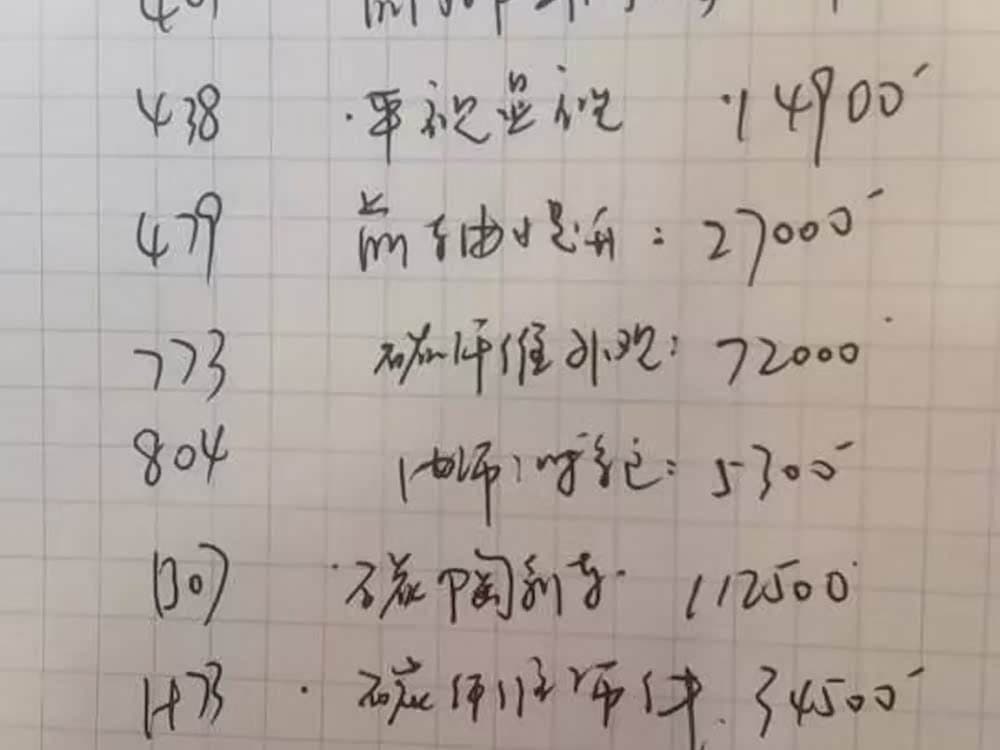 438 · 平视显示 14900
479 前轴提升: 27000
773 碳纤维外观: 72000
804 : 5300
1307 碳陶刹车 112500
1473 · 碳纤维饰件 34500